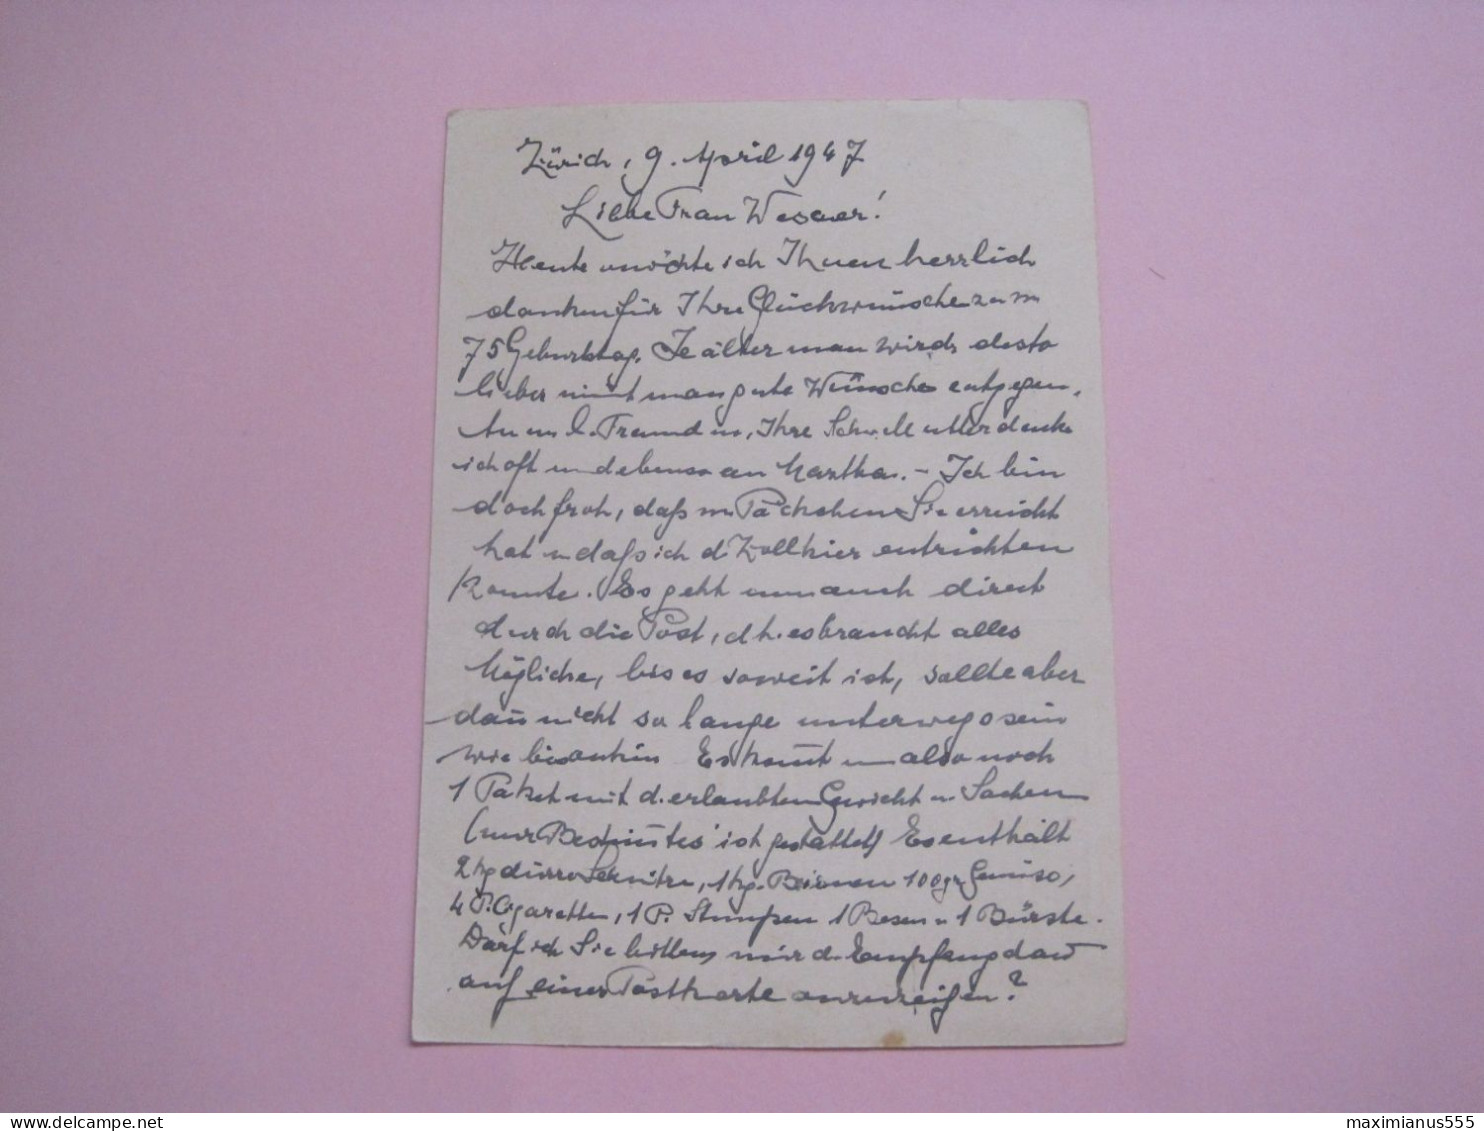 Zürich, 9. April 1947
Liebe Frau
Heute möchte ich Ihnen herzlich
danken für Ihre Glückwünsche zum
75 Geburtstag. Je älter man wird, desto
lieber nimt man gute Wünsche entgegen.
An m. l. Freundin, Ihre denke
ich oft und ebenso an Martha. – Ich bin
doch froh, daß m Päckchen Sie erreicht
hat u daß ich d Zoll hier entrichten
konnte. Es geht nun auch direct
durch die Post, d h. es braucht alles
Mögliche, bis es soweit ist, sollte aber
dan̄ nicht so lange unterwegs sein
wie bis anhin Es kom̄t nun also noch
1 Paket mit d. erlaubten Gewicht u. Sachen
(nur Bestim̄tes ist gestattet) Es enthält
2 kg dürre Schnitze, 1 kg. Birnen 100 gr Gemüse,
4 P. Cigaretten, 1 P. Stumpen 1 Besen u 1 Bürste.
Darf ich Sie bitten, mir d. Empfang dan̄
auf einer Postkarte anzuzeigen?
maximianus555